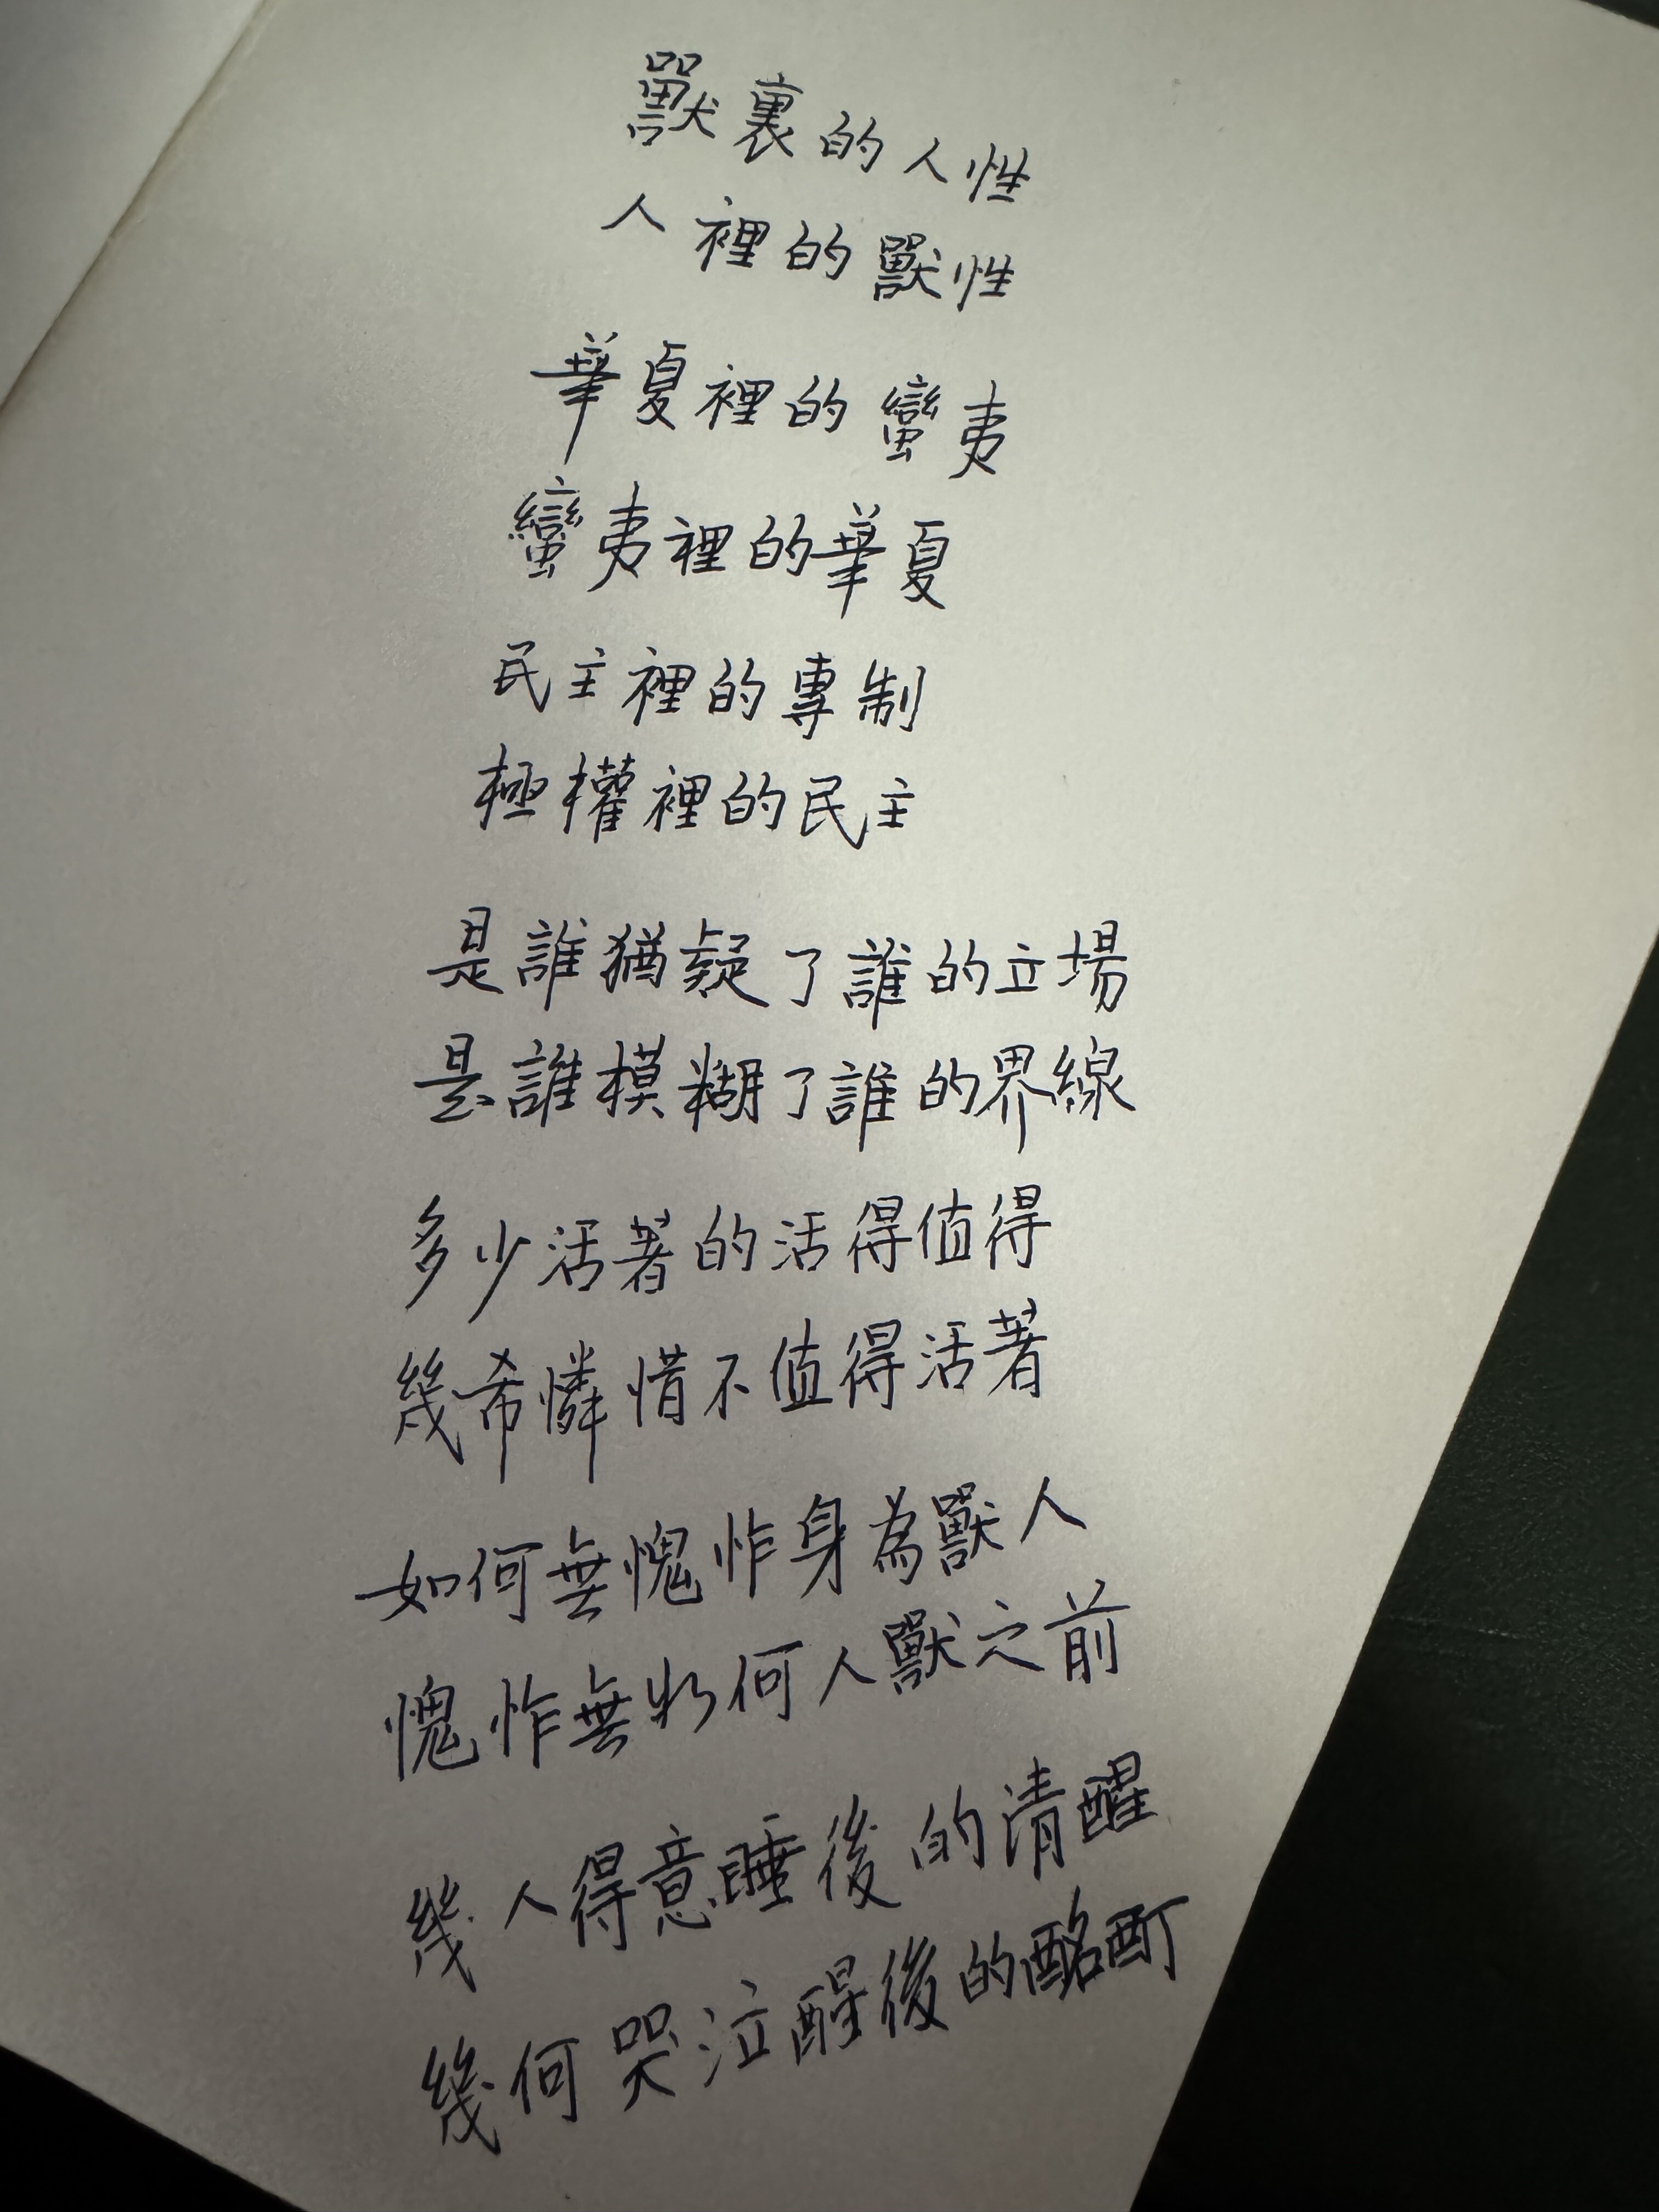 獸裏的人性
人裡的獸性
華夏裡的蠻夷
蠻夷裡的華夏
民主裡的專制
極權裡的民主
是誰猶疑了誰的立場
是誰模糊了誰的界線
多少活著的活得值得
幾希憐惜不值得活著
如何無愧怍身為獸人
愧怍無如何人獸之前
幾人得意睡後的清醒
幾何哭泣醒後的酩酊